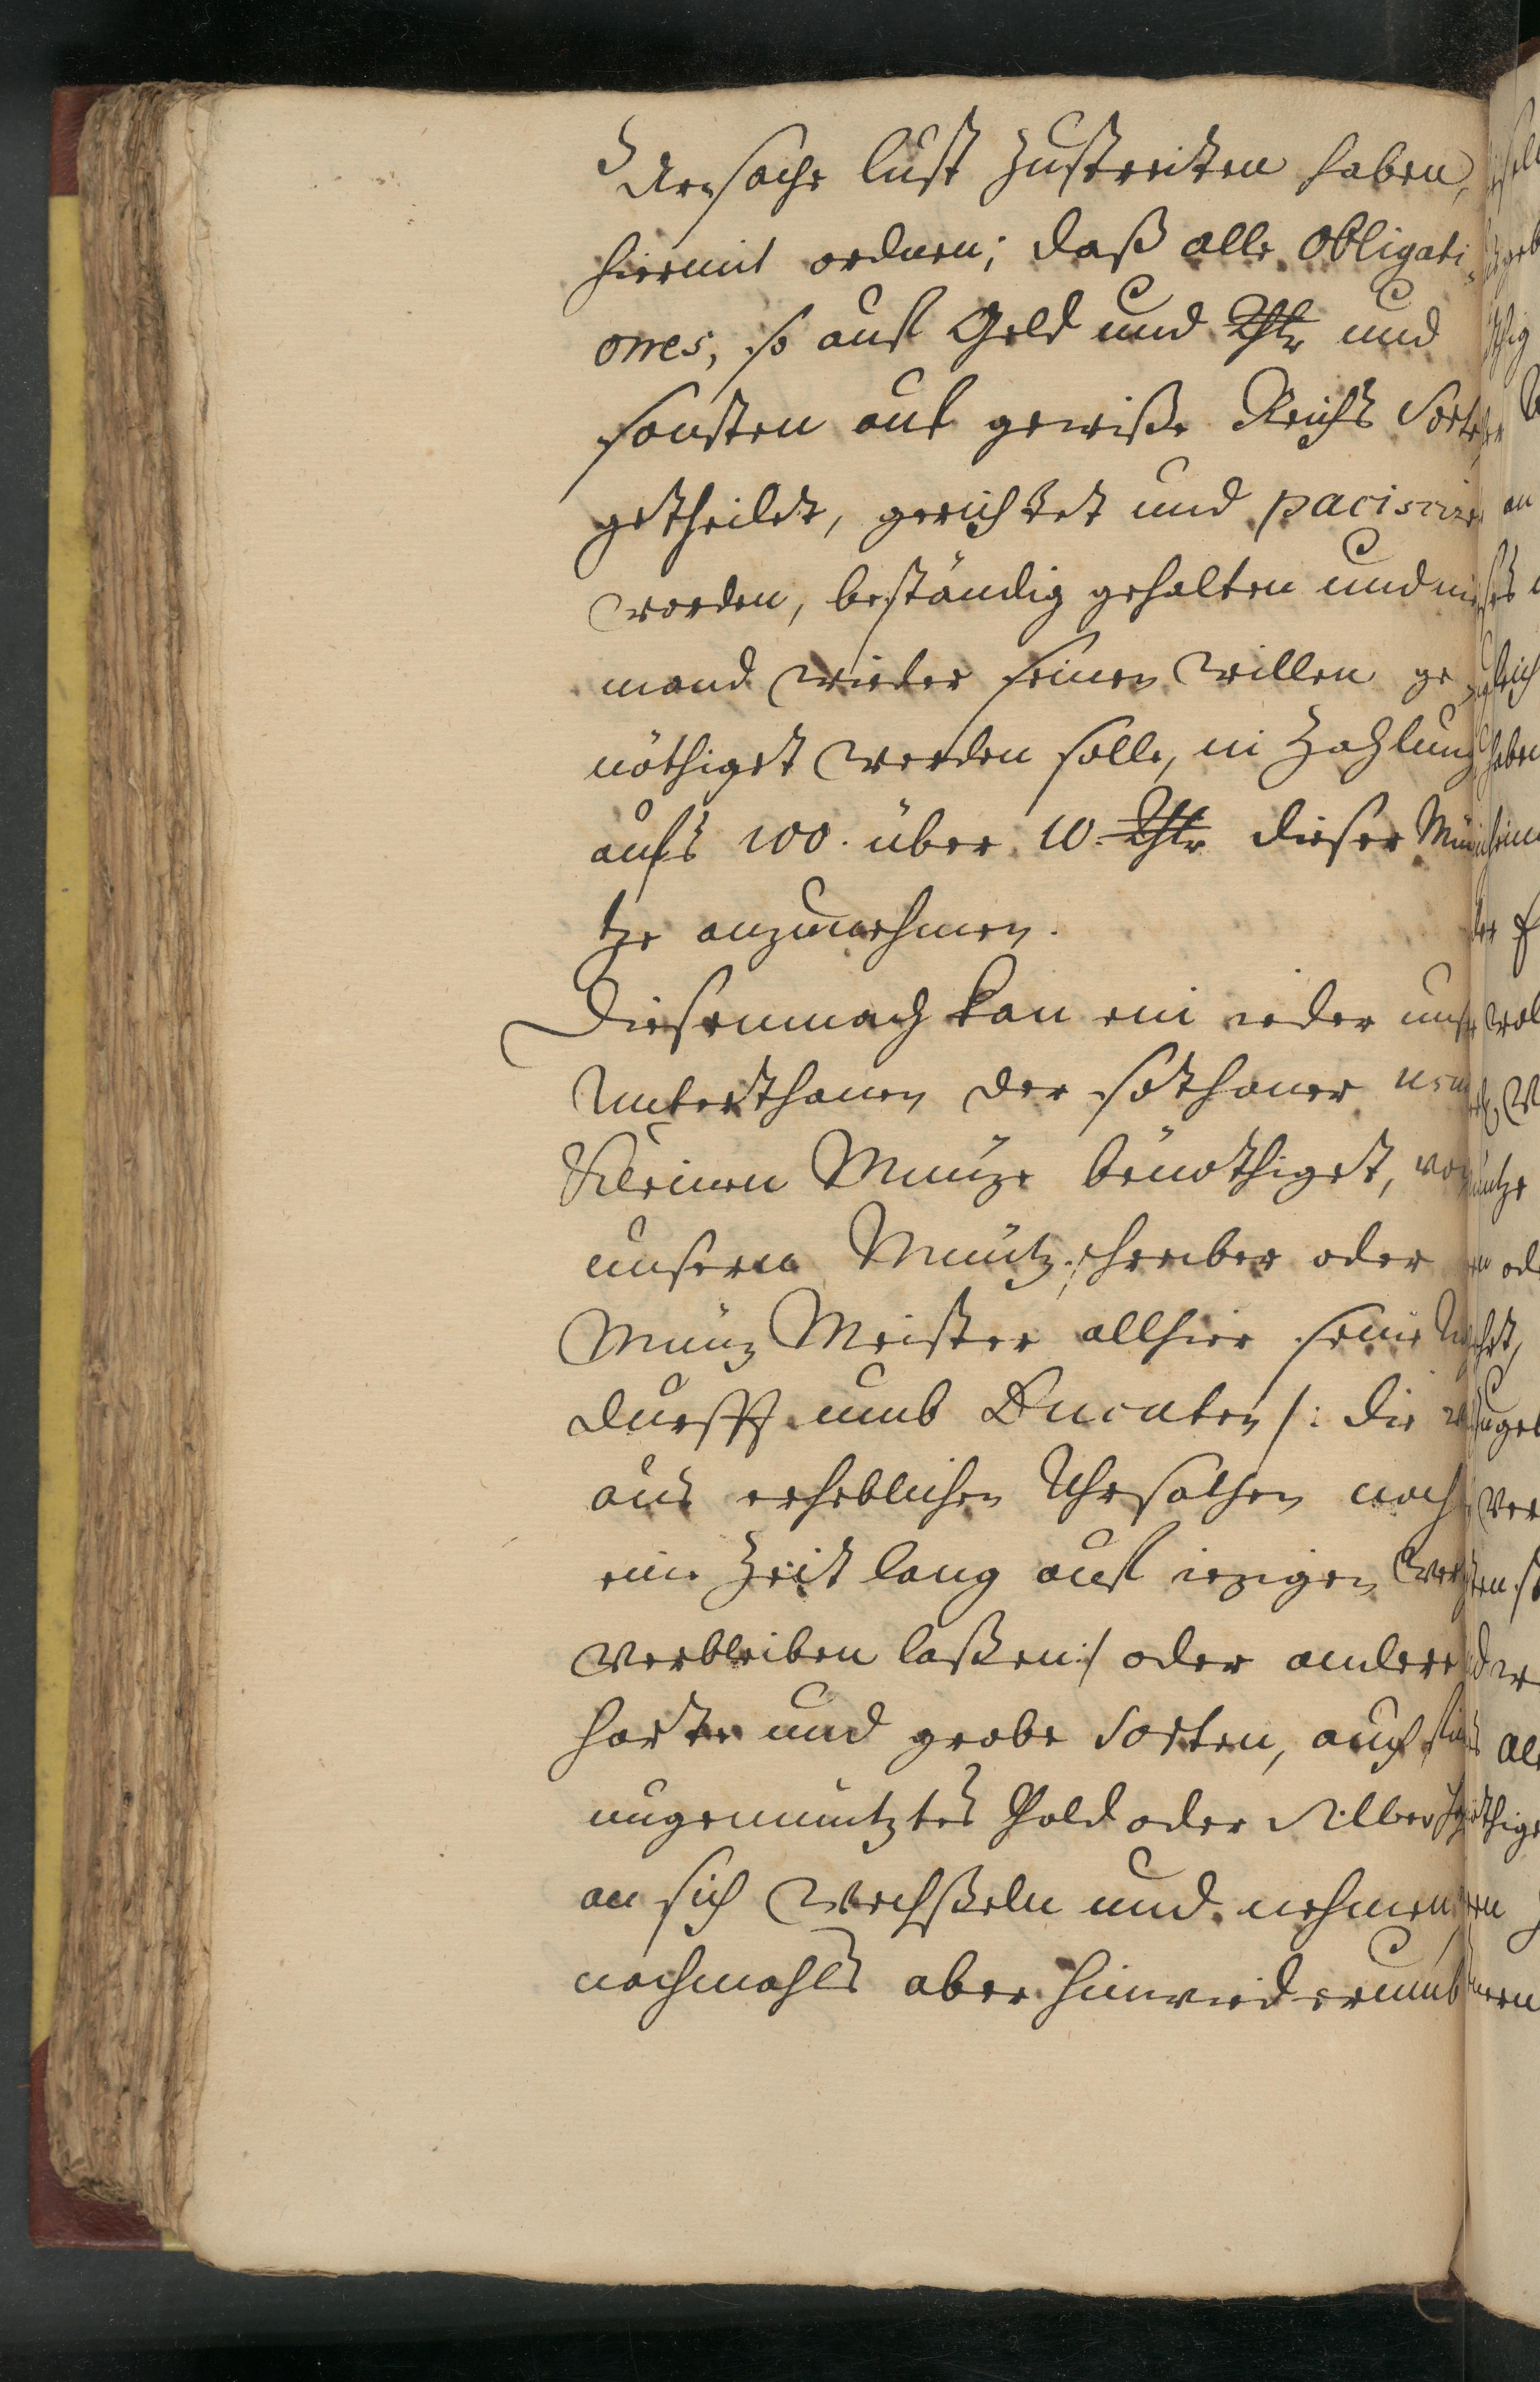 Uhrsache lust zustreiten haben,
hiermit ordnen; daß alle Obligati-
ones, so auf Geld und Rthlr und
sonsten auf gewiße Reichs Sorten
getheilet, gerichtet und paciscire
worden, beständig gehalten und nie
mand wieder seinen willen ge
nöthiget werden solle, in Zahlung
aufs 100. über 10. Rthlr dieser Mün
tze anzunehmen.
Diesemnach kan ein ieder unser
Unterthanen der sothaner
Kleinen Müntze benöthiget, von
unsern Müntzschreiber oder
Müntz Meister allhier seine
durfft umb Ducaten /: die wir
aus erheblichen Uhrsachen noch
eine Zeit lang auf ietzigen Wert
verbleiben laßen :/ oder andere
harte und grobe Sorten, auch
ungemüntztes Gold oder Silber
an sich wechßeln und nehmen,
nachmahls aber hinwiederumb